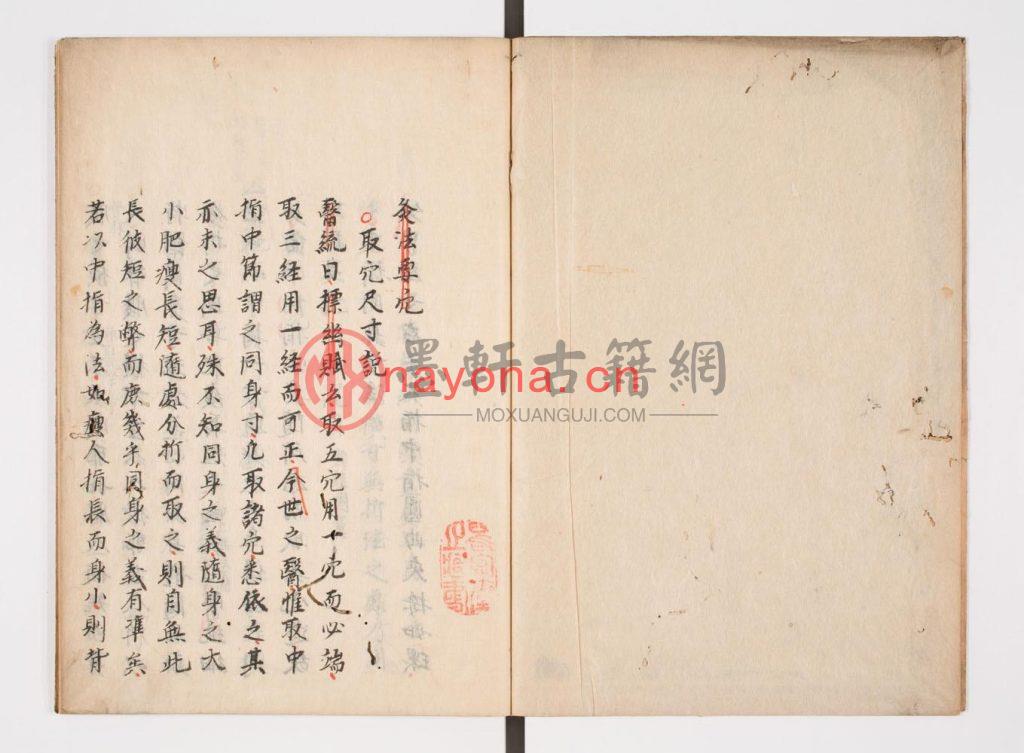 灸法要穴
○取穴尺寸説
醫統曰標幽賦云取五穴用一穴而必端
取三経用一経而可正今世之醫惟取中
指中節謂之同身寸凡取諸穴悉依之其
亦未之思耳殊不知同身之義隨身之大
小肥瘦長短隨處分折而取之則自無此
長彼短之弊而庶幾乎同身之義有準矣
若以中指為法如瘦人指長而身小則背
墨軒古籍網
nayona.cn
MOXUANGUJI.COM